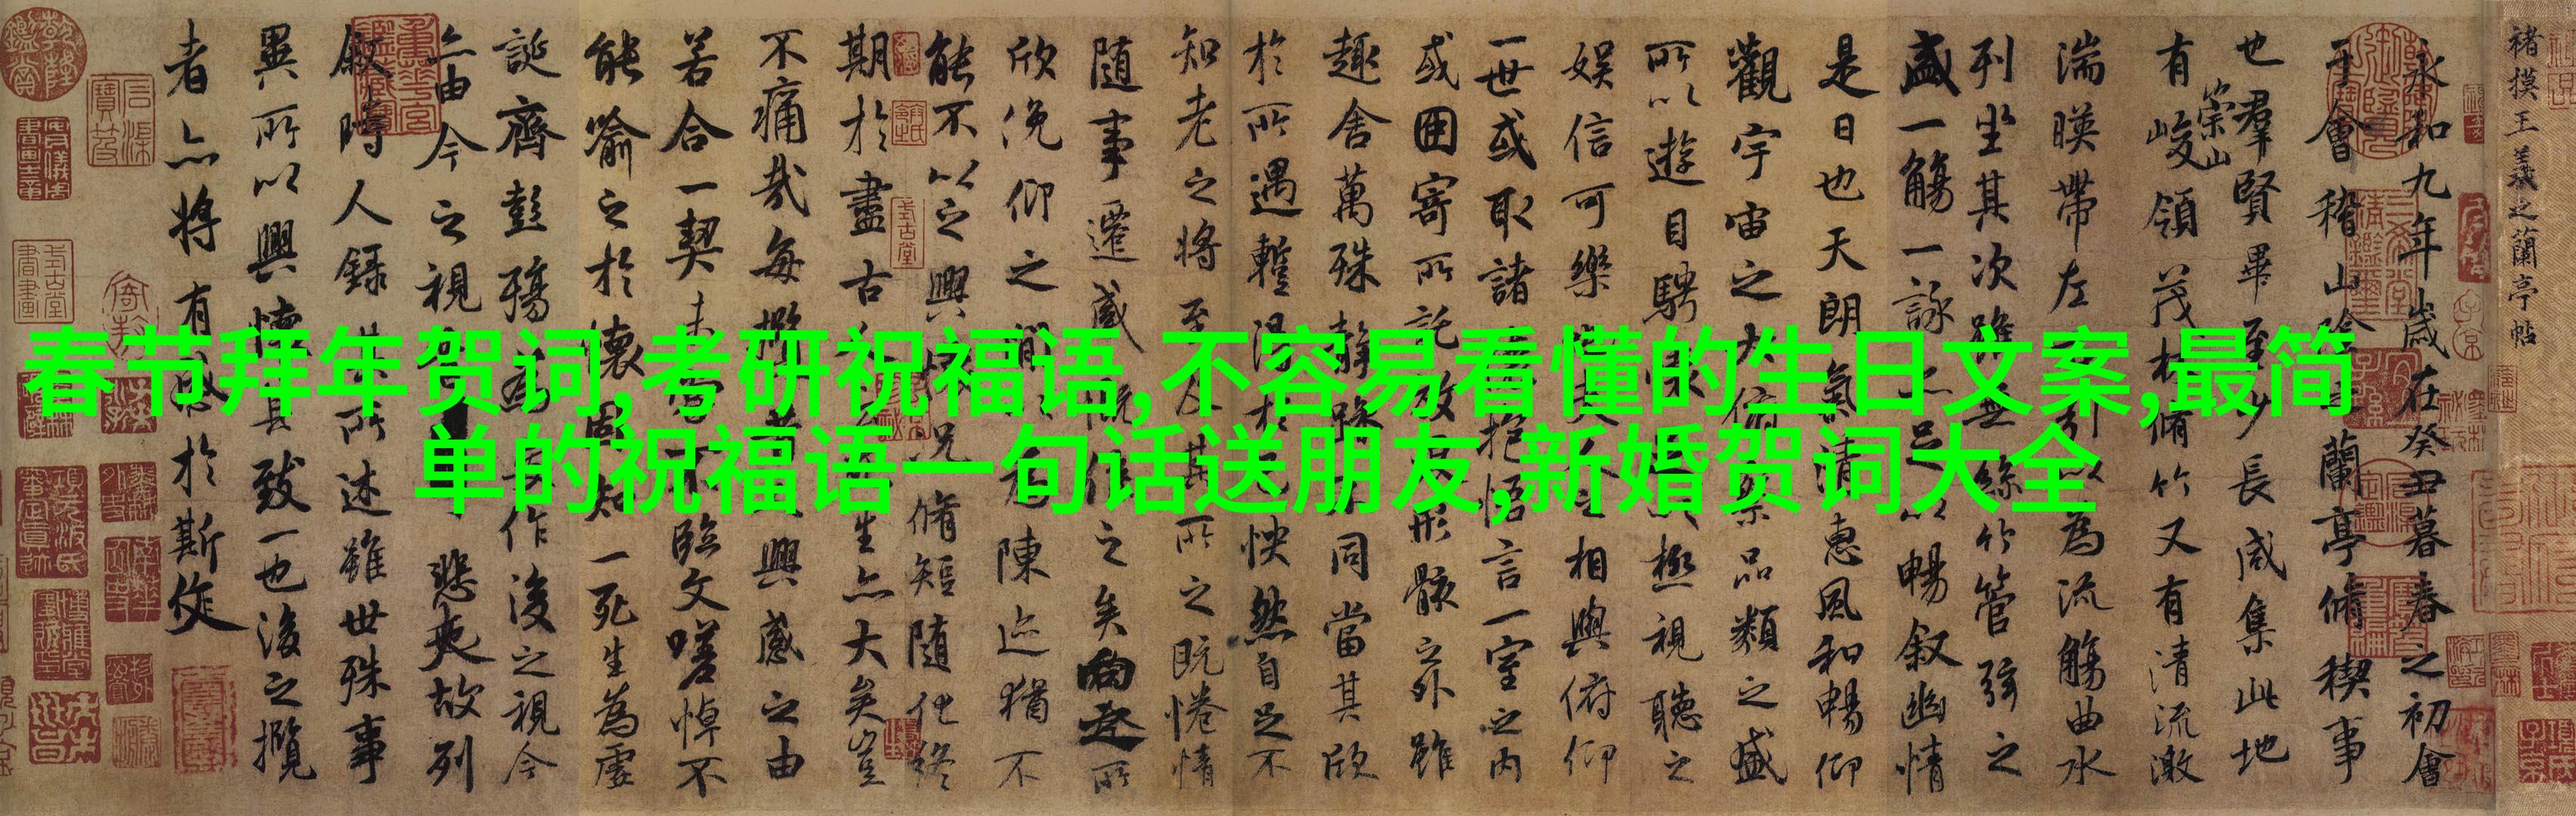 春节拜年贺词,考研祝福语,不容易看懂的生日文案,最简
单的祝福语一句话送朋友,新婚贺词大全
褚摸王羲之蘭亭帖
永和九年歲在癸丑暮春之初會
于會稽山陰之蘭亭脩稧事
也群賢畢至少長咸集此地
有崇山峻領茂林脩竹又有清流激
湍暎帶左引以為流觴曲水
列坐其次雖無絲竹管弦之
盛一觴一詠亦足以暢叙幽情
是日也天朗氣清惠風和暢仰
觀宇宙之大俯察品類之盛
所以遊目騁懷以極視聽之
娛信可樂夫人之相與俯仰
一世或取諸抱悟言一室之內
或因寄所託放形骸之外雖
趣舍萬殊靜躁不同當其欣
於所遇蹔得於己怏然自足不
知老之將至及其所之既惓情
隨事遷感慨係之矣向之所
欣俛仰之閒以為陳迹猶不
能不以之興懷況脩短隨化終
期於盡古生亦大矣豈
不痛哉每攬昔興感之由
若合一契未嘗不臨文嗟悼不
能喻之於懷固知一死生為虛
誕齊彭殤為妄作後之視今
亦由今之視悲夫故列
叙時人錄其所述雖世殊事
異所以興懷其致一也後之攬
者亦將有感於斯文